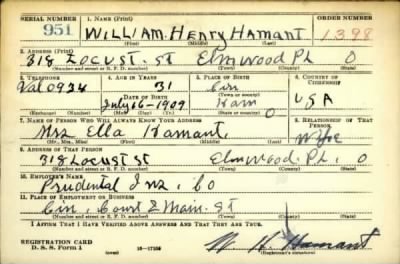 SERIAL NUMBER 1. NAME (Print) ORDER NUMBER
951 WILLIAM. Henry HAMANT 1398
(First) (Middle) (Last)
2. ADDRESS (Print)
318 LOCUST. ST Elmwood Pl O
(Number and street or R. F. D. number) (Town) (County) (State)
3. TELEPHONE 4. AGE IN YEARS 5. PLACE OF BIRTH 6. COUNTRY OF CITIZENSHIP
Val 0934 31 Cin
DATE OF BIRTH Ham USA
July 16-1909 O
(Exchange) (Number) (Mo.) (Day) (Yr.) (State or country)
7. NAME OF PERSON WHO WILL ALWAYS KNOW YOUR ADDRESS 8. RELATIONSHIP OF THAT PERSON
Mrs Ella Hamant, Wife
(Mr., Mrs., Miss) (First) (Middle) (Last)
9. ADDRESS OF THAT PERSON
318 Locust St Elmwood. Pl, O
(Number and street or R. F. D. number) (Town) (County) (State)
10. EMPLOYER'S NAME
Prudental Ins, Co
11. PLACE OF EMPLOYMENT OR BUSINESS
Cin, Court & Main. St
(Number and street or R. F. D. number) (Town) (County) (State)
I AFFIRM THAT I HAVE VERIFIED ABOVE ANSWERS AND THAT THEY ARE TRUE.
REGISTRATION CARD
D. S. S. Form 1 (over) 16-17105 W. H. Hamant
(Registrant's signature)